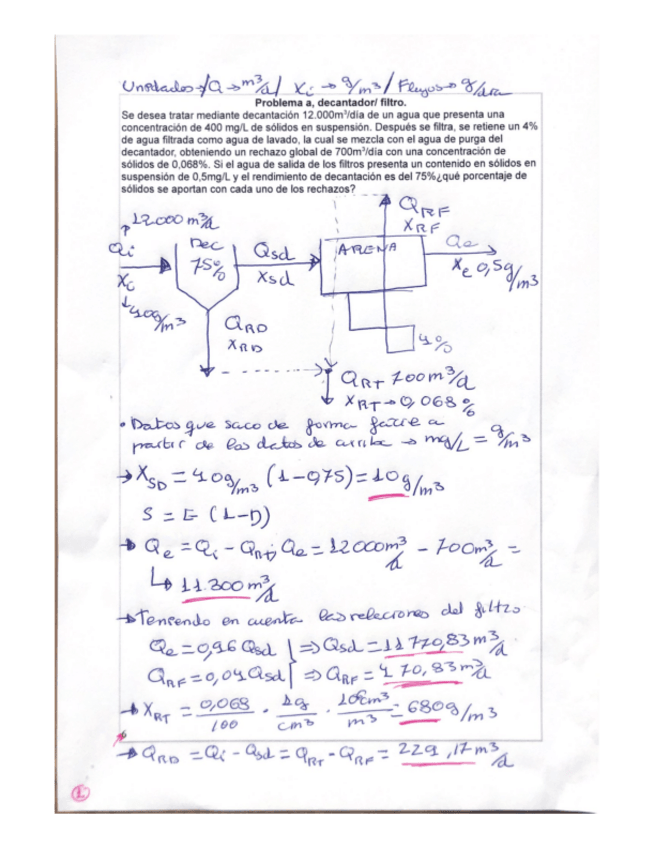 Unidades → Q → m³/d / Xi → g/m³ / Flujos → g/día
Problema a, decantador/ filtro.
Se desea tratar mediante decantación 12.000m³/día de un agua que presenta una
concentración de 400 mg/L de sólidos en suspensión. Después se filtra, se retiene un 4%
de agua filtrada como agua de lavado, la cual se mezcla con el agua de purga del
decantador, obteniendo un rechazo global de 700m³/día con una concentración de
sólidos de 0,068%. Si el agua de salida de los filtros presenta un contenido en sólidos en
suspensión de 0,5mg/L y el rendimiento de decantación es del 75%¿qué porcentaje de
sólidos se aportan con cada uno de los rechazos?
12000 m³/d
Qi
Xi
40g/m³
Dec
75%
Qsd
Xsd
ARENA
QRF
XRF
Qe
Xe 0,5g/m³
4%
QRD
XRD
QRT 700m³/d
XRT → 0,068%
• Datos que saco de forma fácil a
partir de los datos de arriba → mg/L = g/m³
→ XSD = 40g/m³ (1-0,75) = 10g/m³
S = E (1-D)
→ Qe = Qi - QRT; Qe = 12000m³/d - 700m³/d =
↳ 11.300 m³/d
→ Teniendo en cuenta las relaciones del filtro
Qe = 0,96 Qsd ⇒ Qsd = 11770,83 m³/d
QRF = 0,04 Qsd ⇒ QRF = 470,83 m³/d
→ XRT = 0,068/100 · 1g/cm³ · 10⁶cm³/m³ = 680g/m³
→ QRD = Qi - Qsd = QRT - QRF = 229,17 m³/d
1